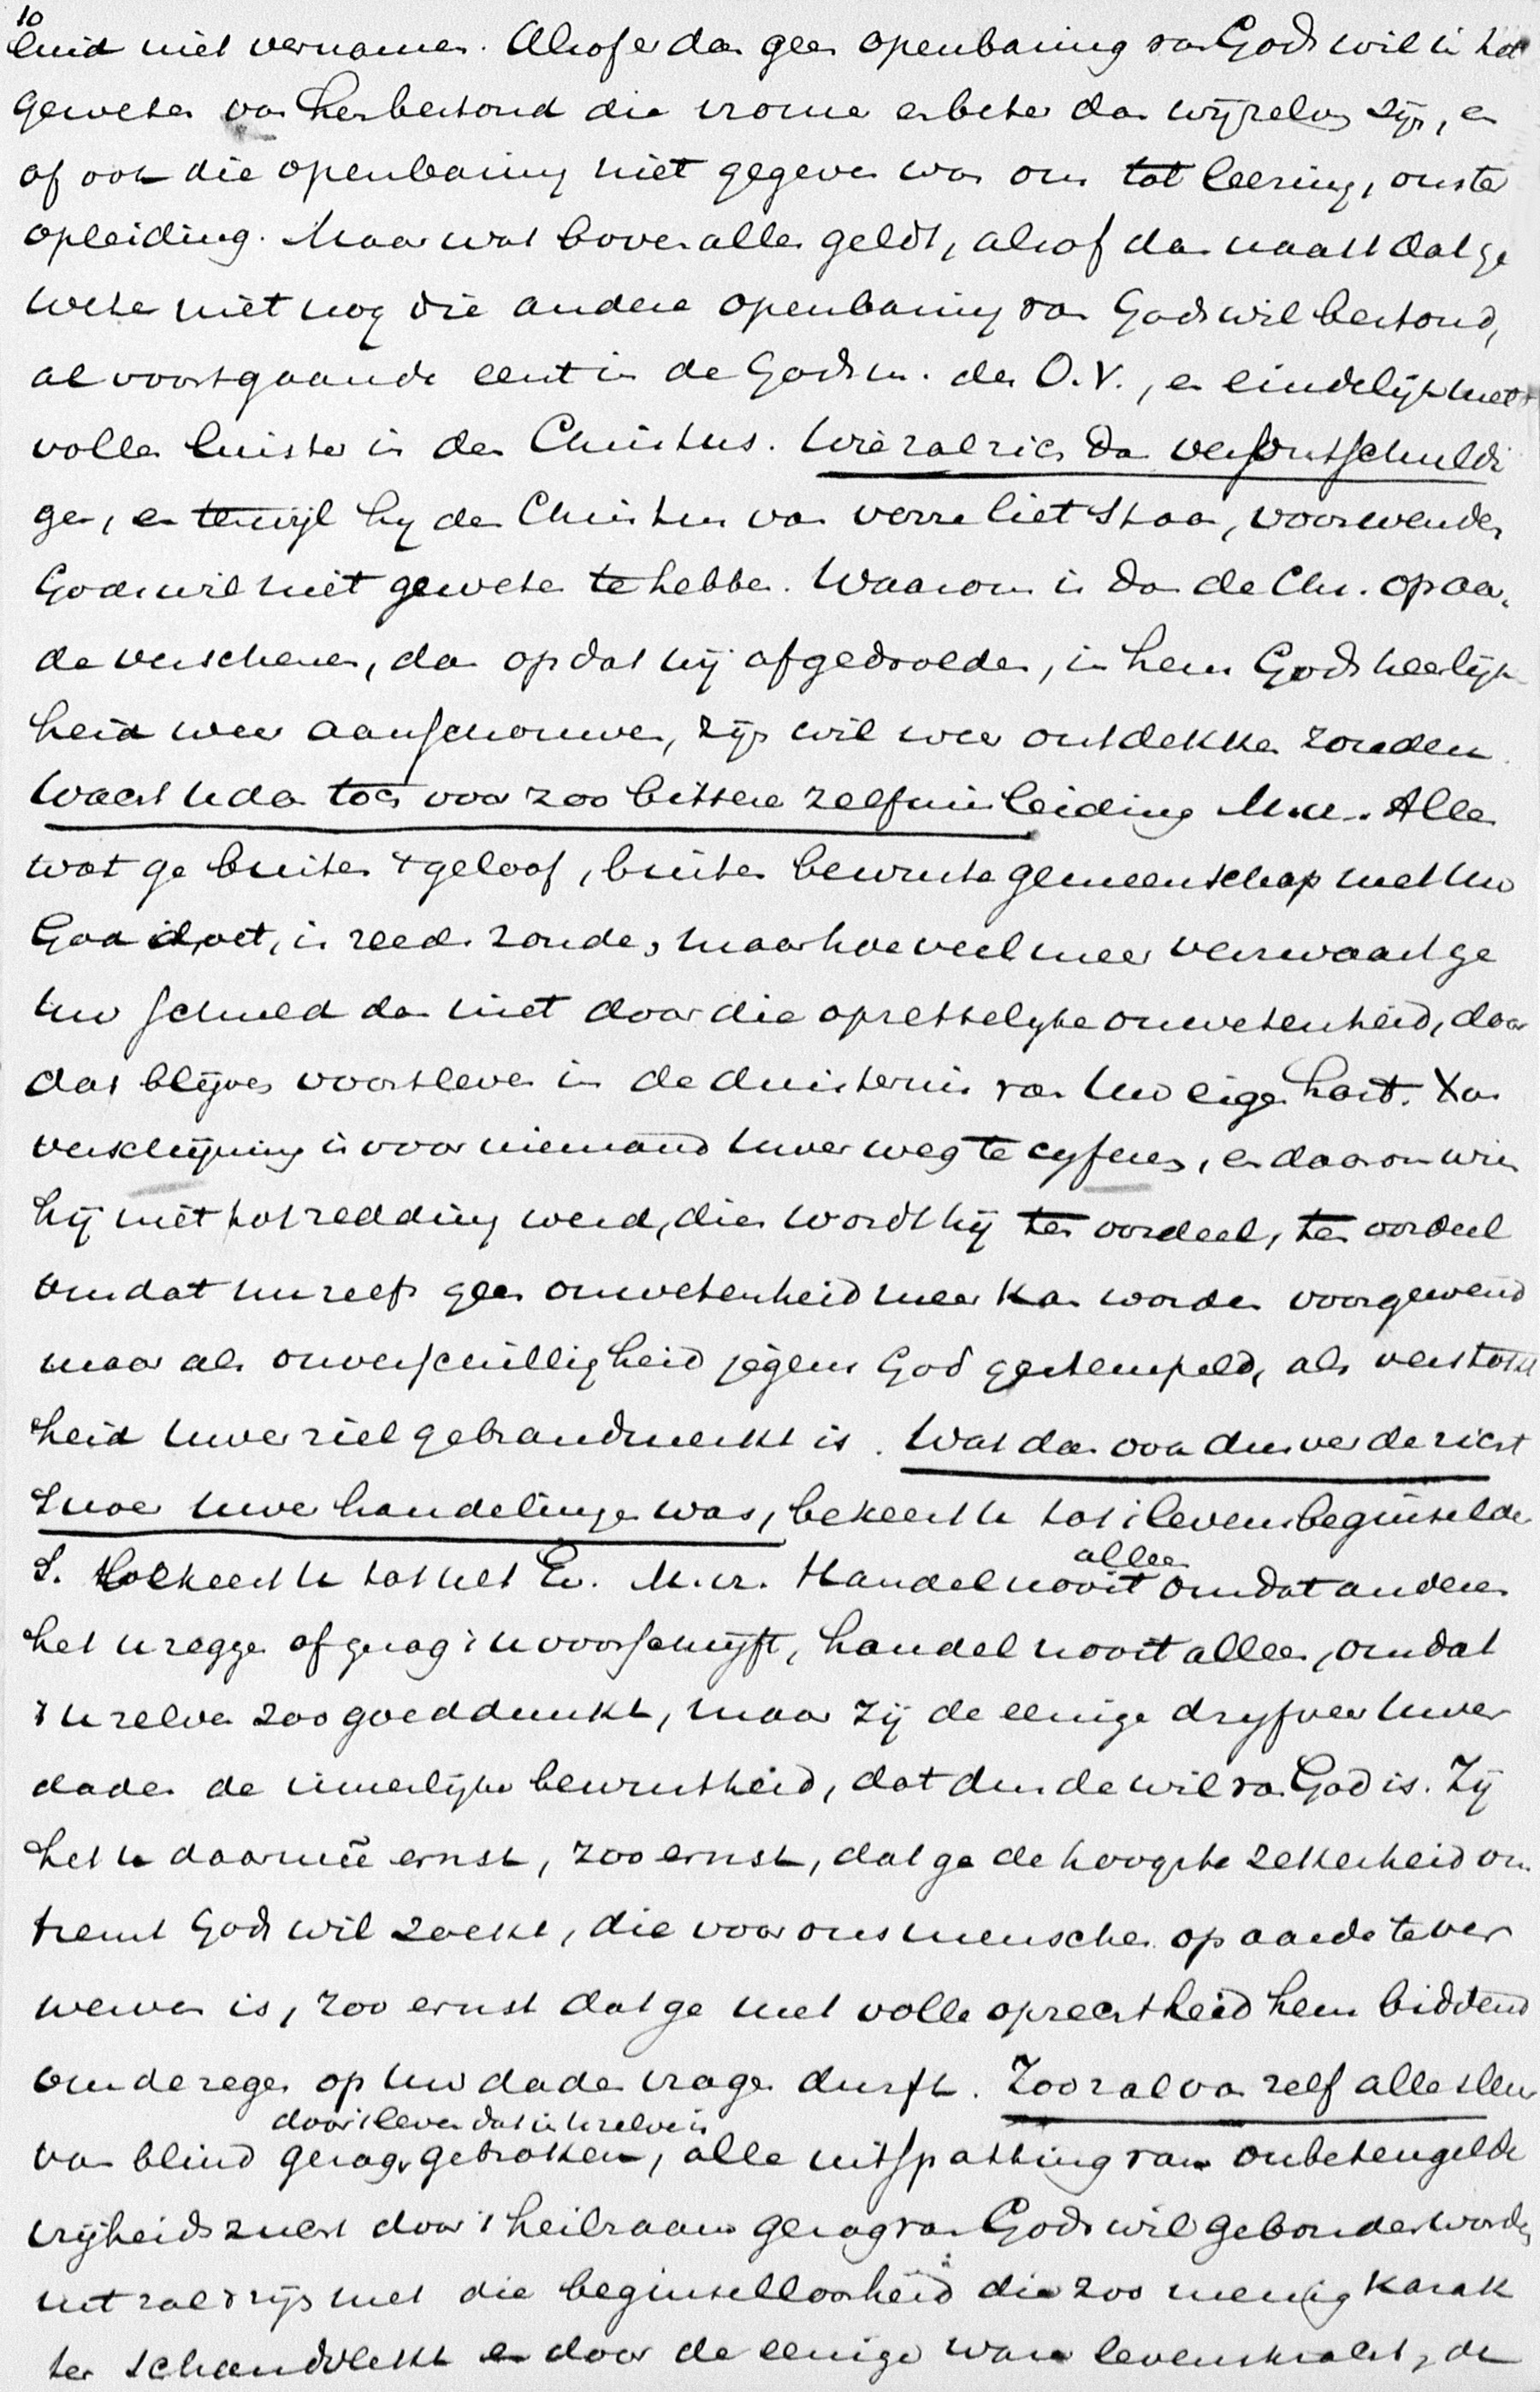 10
luid niet vernamen. Alsof er dan geen openbaring van Gods wil in het
geweten van hen bestond die vromer en beter dan wijzelven zijn, en
of ook die openbaring niet gegeven was ons tot leering, ons ter
opleiding. Maar wat boven alles geldt, alsof dan naast dat ge
weten niet nog die andere openbaring van Gods wil bestond,
al voortgaande eerst in de Godsm. des O.V., en eindelijk met
vollen luister in den Christus. Wie zal zich dan verontschuldi
gen, en terwijl hy den Christus van verre liet staan, voorwenden
Gods wil niet geweten te hebben. Waarom is dan de Chr. op aar
de verschenen, dan opdat wij afgedoolden, in hem Gods heerlijk
heid weer aanschouwen, zijn wil weer ontdekken zouden.
Wacht u dan toch voor zoo bittere zelfmisleiding M.H. Alles
wat ge buiten 't geloof, buiten bewuste gemeenschap met uw
God doet, is reeds zonde, maar hoeveel meer verzwaart ge
uw schuld dan niet door die opzettelyke onwetenheid, door
dat blijven voortleven in de duisternis van uw eigen hart. Xus
verschijning is voor niemand uwer weg te cyferen, en daarom wien
hij niet tot redding werd, dien wordt hij ten oordeel, ten oordeel
omdat nu zelfs geen onwetenheid meer kan worden voorgewend
maar als onverschilligheid jegens God gestempeld, als verstokt
heid uwer ziel gebrandmerkt is. Wat dan ook dusver de richt
snoer uwer handelingen was, bekeert u tot 't levensbeginsel des
S. Bekeert u tot het Ev. M.H. Handel nooit alleen omdat anderen
het u zeggen of gezag 't u voorschrijft, handel nooit alleen, omdat
't u zelven zoo goeddunkt, maar zij de eenige dryfveer uwer
daden de innerlijke bewustheid, dat dus de wil van God is. Zij
het u daarmeê ernst, zoo ernst, dat ge de hoogste zekerheid om
trent Gods wil zoekt, die voor ons menschen op aarde te ver
werven is, zoo ernst dat ge met volle oprechtheid hem biddend
om de zegen op uw daden vragen durft. Zoo zal van zelf alle sleur
van blind gezag door 't leven dat in u zelven is gebroken, alle uitspatting van onbeteugelde
vrijheidszucht door 't heilzaam gezag van Gods wil gebonden worden
uit zal 't zijn met die beginselloosheid die zoo menig karak
ter schandvlekt en door de eenige ware levenskracht, de